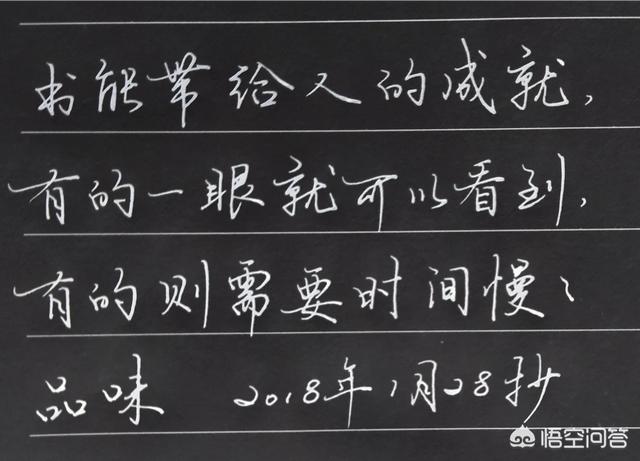 书能带给人的成就，
有的一眼就可以看到，
有的则需要时间慢慢
品味 2018年1月28抄
悟空问答